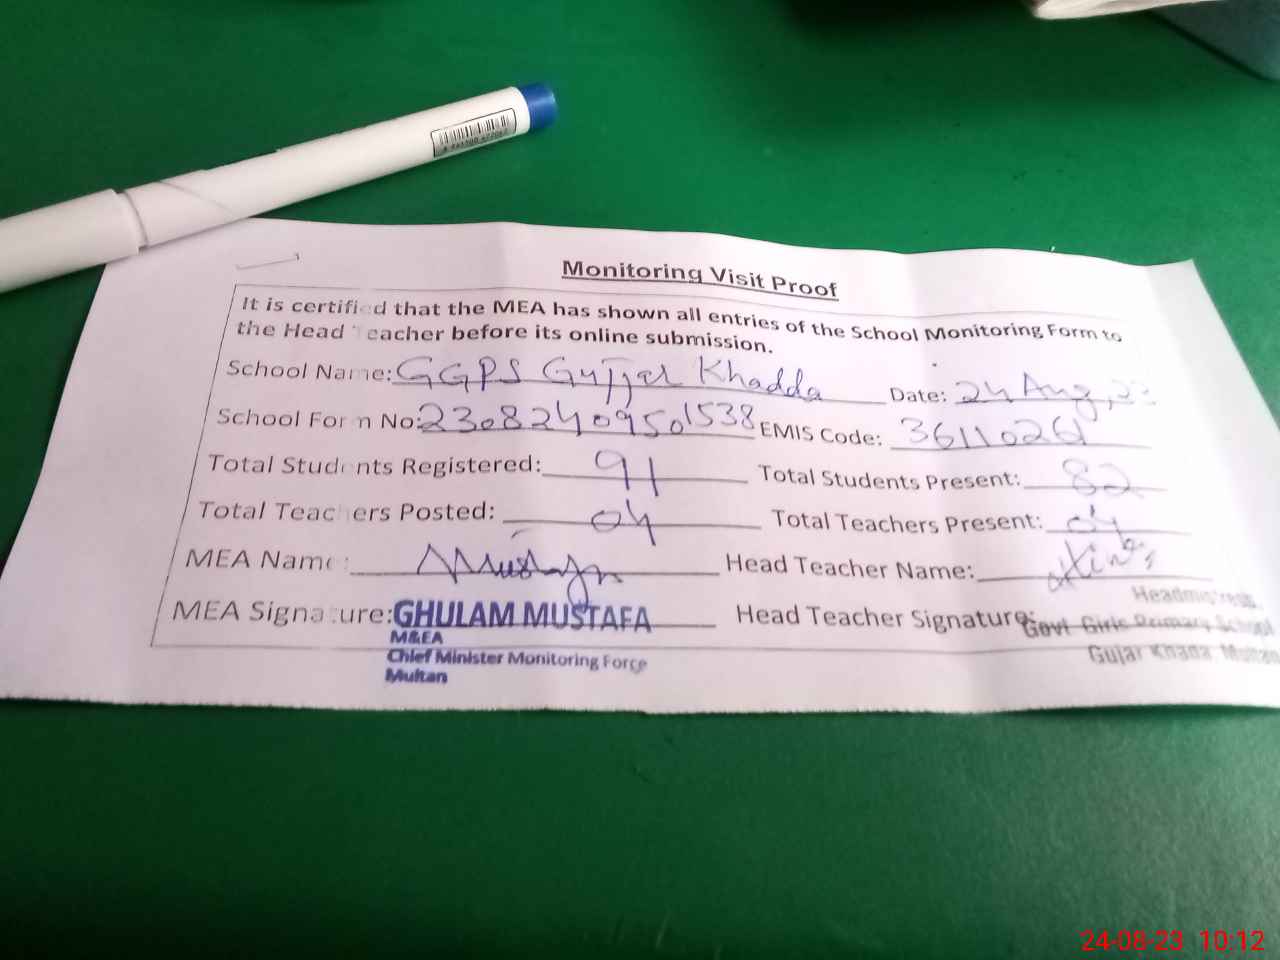 Monitoring Visit Proof
It is certified that the MEA has shown all entries of the School Monitoring Form to
the Head Teacher before its online submission.
School Name: GGPS Gujjar Khadda Date: 24 Aug, 23
School Form No: 23082409501538 EMIS Code: 36110261
Total Students Registered: 91 Total Students Present: 82
Total Teachers Posted: 04 Total Teachers Present: 04
MEA Name: Mustafa Head Teacher Name:
MEA Signature: GHULAM MUSTAFA Head Teacher Signature:
M&EA
Chief Minister Monitoring Force
Multan
Headmistress
Govt Girls Primary School
Gujar Khada Multan
24-08-23 10:12